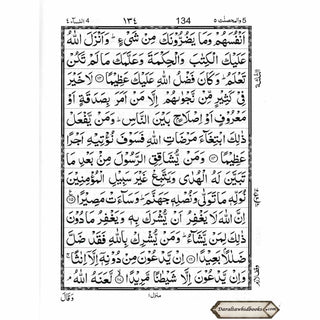 5 والمحصنت ٥ 134 ١٣٤ 4 النسآء ٤
اَنْفُسَهُمْ وَمَا يَضُرُّوْنَكَ مِنْ شَىْءٍ ؕ وَاَنْزَلَ اللّٰهُ
عَلَيْكَ الْكِتٰبَ وَالْحِكْمَةَ وَعَلَّمَكَ مَا لَمْ تَكُنْ
تَعْلَمُ ؕ وَكَانَ فَضْلُ اللّٰهِ عَلَيْكَ عَظِيْمًا ۝ لَا خَيْرَ
فِىْ كَثِيْرٍ مِّنْ نَّجْوٰىهُمْ اِلَّا مَنْ اَمَرَ بِصَدَقَةٍ اَوْ
مَعْرُوْفٍ اَوْ اِصْلَاحٍ ۢ بَيْنَ النَّاسِ ؕ وَمَنْ يَّفْعَلْ
ذٰلِكَ ابْتِغَآءَ مَرْضَاتِ اللّٰهِ فَسَوْفَ نُؤْتِيْهِ اَجْرًا
عَظِيْمًا ۝ وَمَنْ يُّشَاقِقِ الرَّسُوْلَ مِنْ ۢ بَعْدِ مَا
تَبَيَّنَ لَهُ الْهُدٰى وَيَتَّبِعْ غَيْرَ سَبِيْلِ الْمُؤْمِنِيْنَ
نُوَلِّهٖ مَا تَوَلّٰى وَنُصْلِهٖ جَهَنَّمَ ؕ وَسَآءَتْ مَصِيْرًا ۝
اِنَّ اللّٰهَ لَا يَغْفِرُ اَنْ يُّشْرَكَ بِهٖ وَيَغْفِرُ مَا دُوْنَ
ذٰلِكَ لِمَنْ يَّشَآءُ ؕ وَمَنْ يُّشْرِكْ بِاللّٰهِ فَقَدْ ضَلَّ
ضَلٰلًا ۢ بَعِيْدًا ۝ اِنْ يَّدْعُوْنَ مِنْ دُوْنِهٖۤ اِلَّاۤ اِنٰثًا ۚ
وَاِنْ يَّدْعُوْنَ اِلَّا شَيْطٰنًا مَّرِيْدًا ۝ لَّعَنَهُ اللّٰهُ ۘ
وَقَالَ
منزل ١
Darultawhidbooks.com